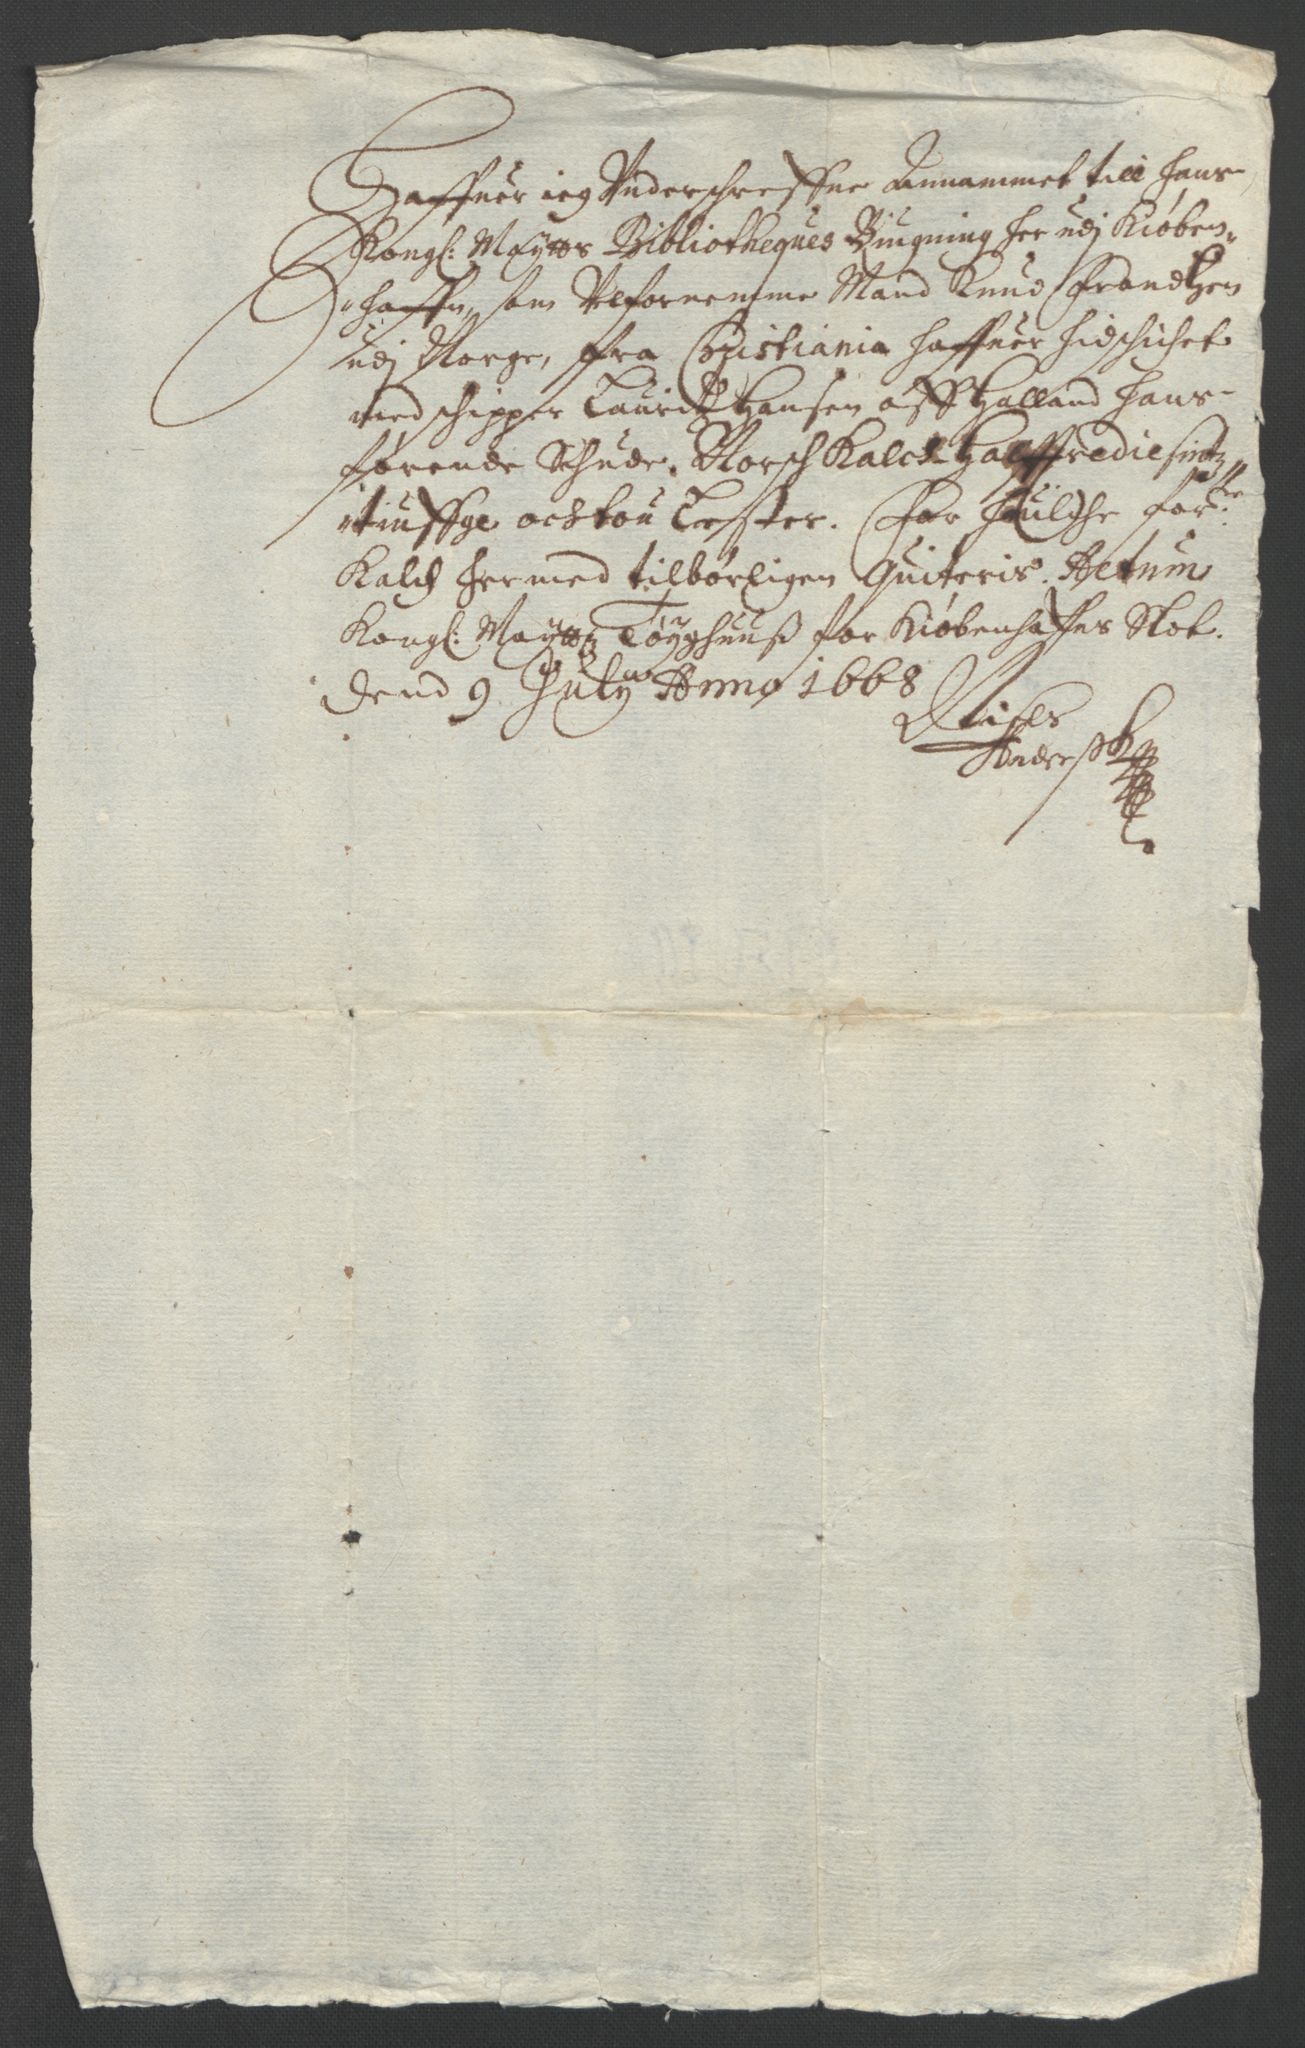 Haffuer ieg Underschreffne Annammet till hans
Kongl: Maÿtts Bibliotheques Biugning her udj Kiøben-
haffn, som Velfornemme Mand Knud Frandtzen
udj Norge, fra Christiania haffuer hidschichet
med schipper Lauritz Hansen aff Halland hans
førende Schude, Norsch Kalch Halffierdiesintz
tiuffge och tou Lester. For huilche for:ne
Kalch hermed tilbørligen Quiteris. Actum
Kongl: Maÿttz Tøÿghuuß for Kiøbenhaffns Slot.
dend 9 Julÿ Anno 1668
Niels
Anderß